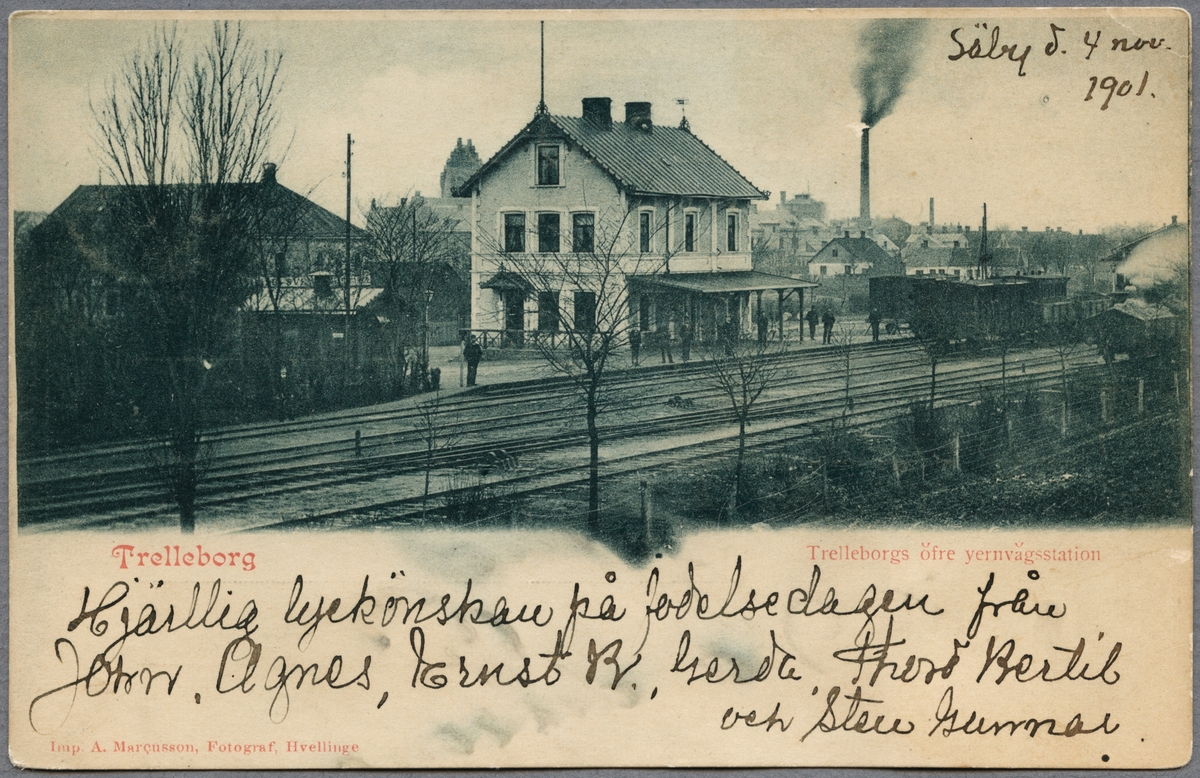 Säby d. 4 nov.
1901.
Trelleborg
Trelleborgs öfre yernvägsstation
Hjärtlig lyckönskan på födelsedagen från
John, Agnes, Ernst R., Gerda, Thord Bertil
och Sten Gunnar.
Imp. A. Marçusson, Fotograf, Hvellinge